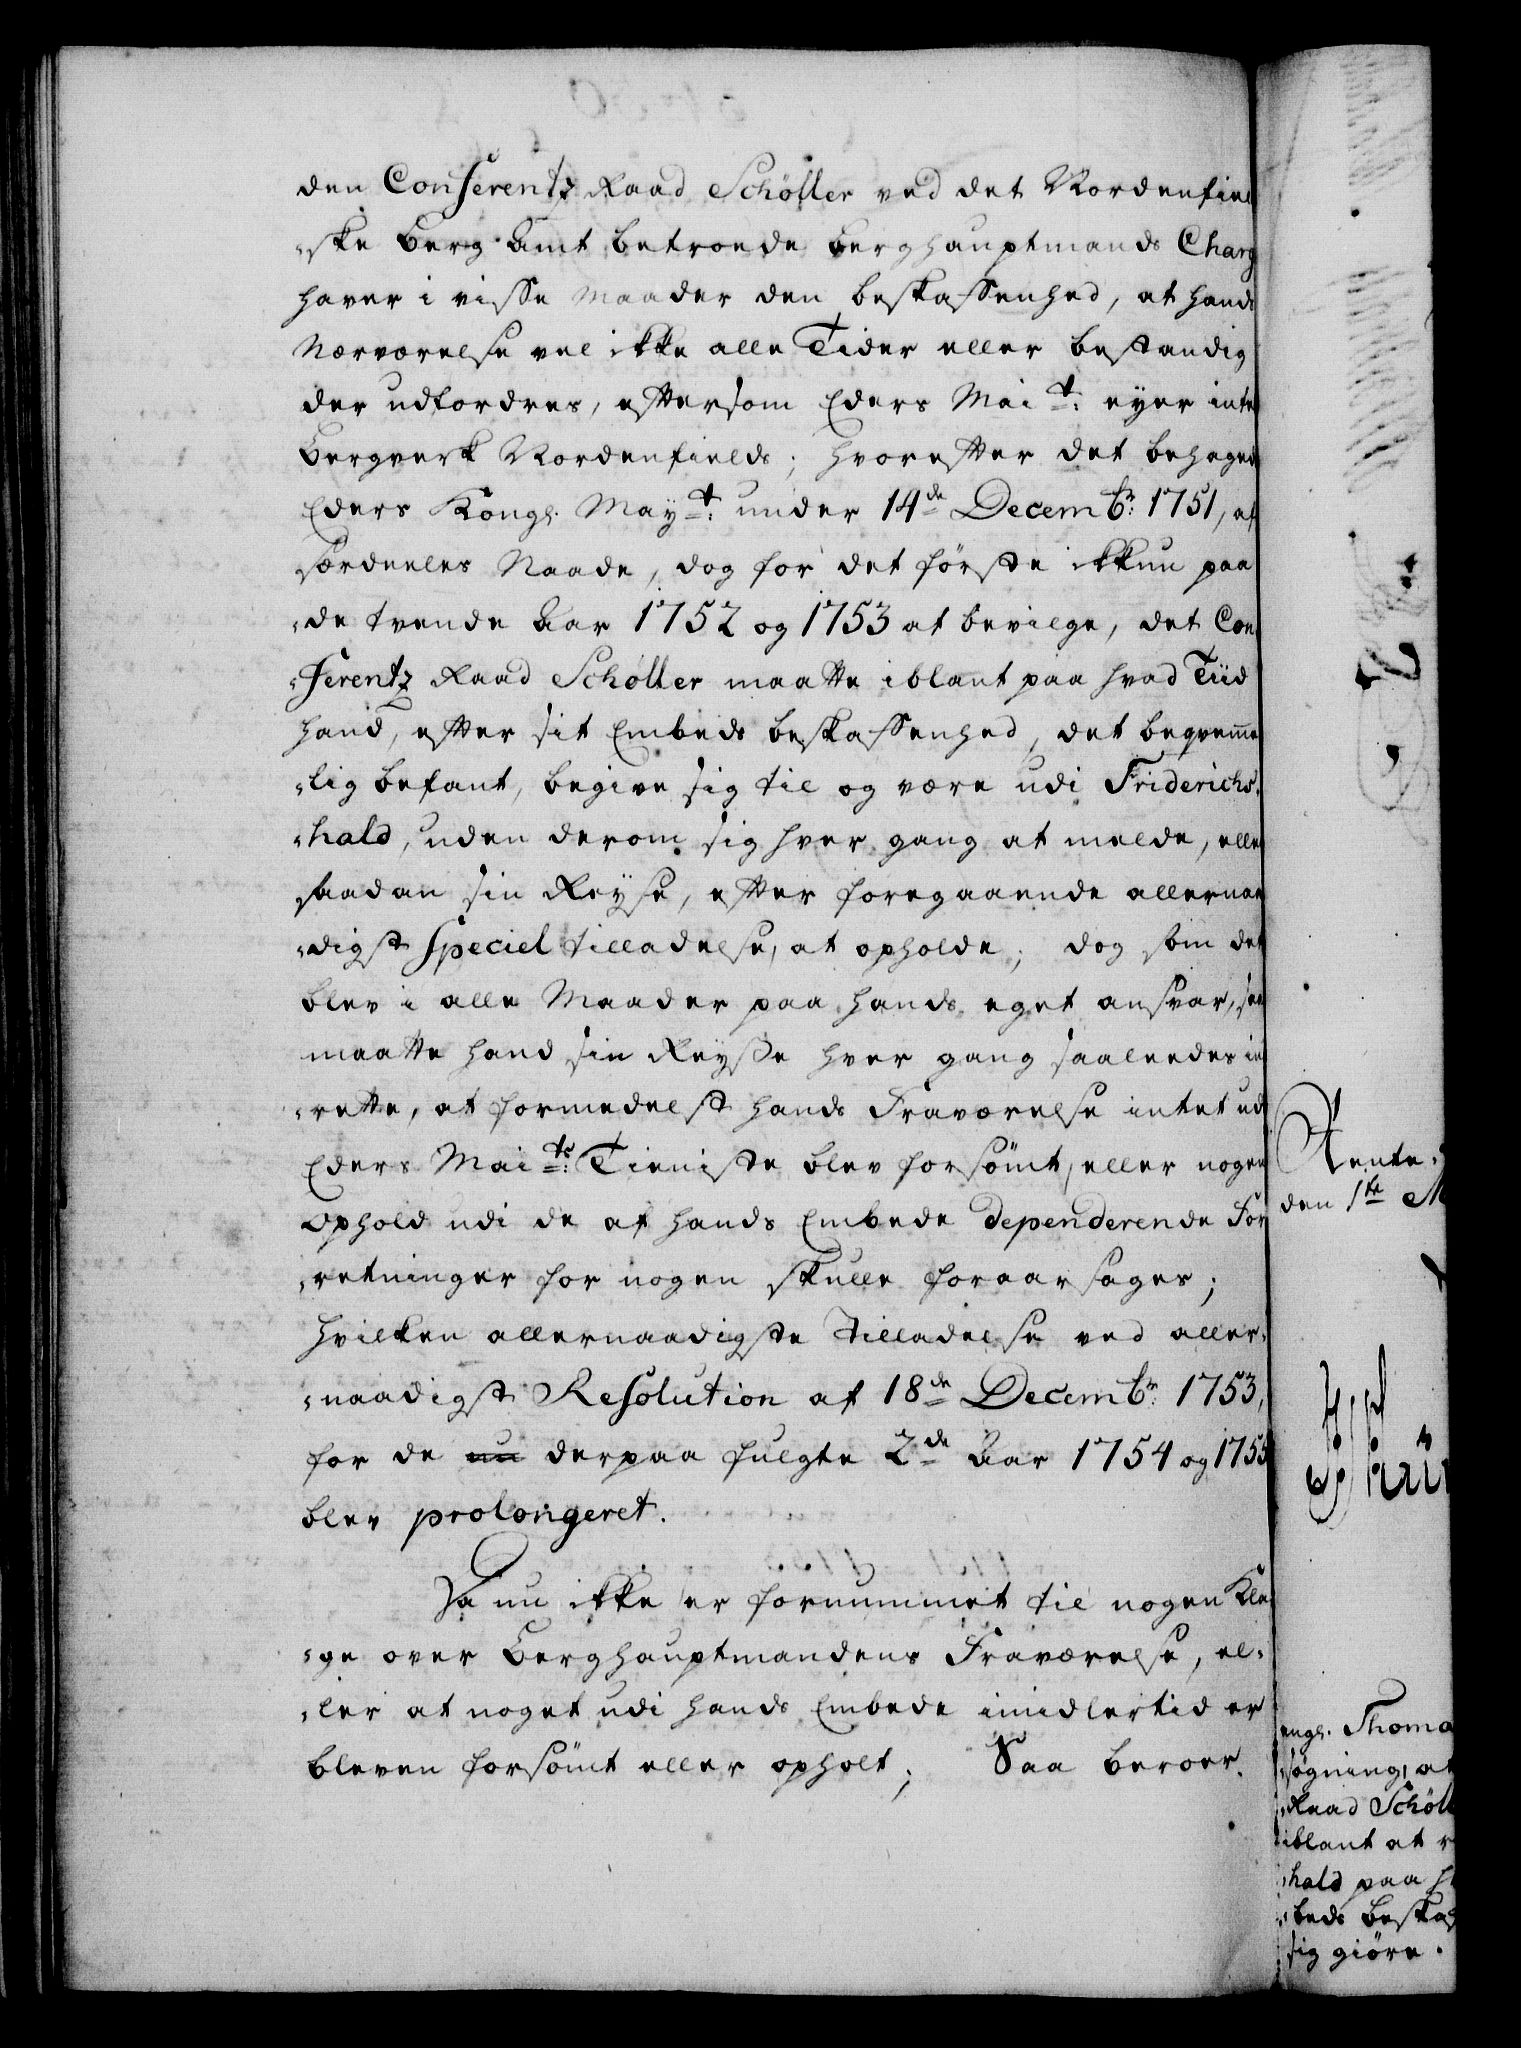 den Conferentz Raad Schöller ved det Nordenfiel
-ske Berg-Amt betroede Berghauptmands Charg
haver i visse Maader den beskaffenhed, at hands
Nærværelse vel ikke alle Tider eller bestandig
der udfordres, eftersom Eders Mai^t: eyer intet
Bergverk Nordenfields; hvorefter det behagede
Eders Kongl. May^t: under 14^de Decemb^r: 1751, af
særdeeles Naade, dog for det første ikkun paa
-de tvende Aar 1752 og 1753 at bevilge, det Con-
-ferentz Raad Schøller maatte iblant paa hvad Tiid
hand, efter sit Embeds beskaffenhed, det beqvemme
-lig befant, begive sig til og være udi Friderichs-
-hald, uden derom sig hver gang at melde, eller
saadan sin Reyse, efter foregaaende allernaa
-digst Speciel tilladelse, at opholde; dog som det
blev i alle Maader paa hands eget ansvar, saa
maatte hand sin Reyse hver gang saaleedes ind
-rette, at formedelst hands Fraværelse intet udi
Eders Mai^ts: Tieniste blev forsømt, eller nogen
Ophold udi de af hands Embede dependerende For
-retninger for nogen skulle foraarsages;
hvilken allernaadigste Tilladelse ved aller-
-naadigst Resolution af 18^de Decemb^r: 1753,
for de nu derpaa fulgte 2^de Aar 1754 og 1755
blev prolongeret.
Da nu ikke er fornummet til nogen Kla-
-ge over Berghauptmandens Fraværelse, el-
-ler at noget udi hands Embede imidlertid er
bleven forsømt eller opholt; Saa beroer
Rente-
den 1^te M
engl. Thoma
-søgning, at
-Raad Schöll
iblant at
-hald paa
-beds beskaf
sig giöre.